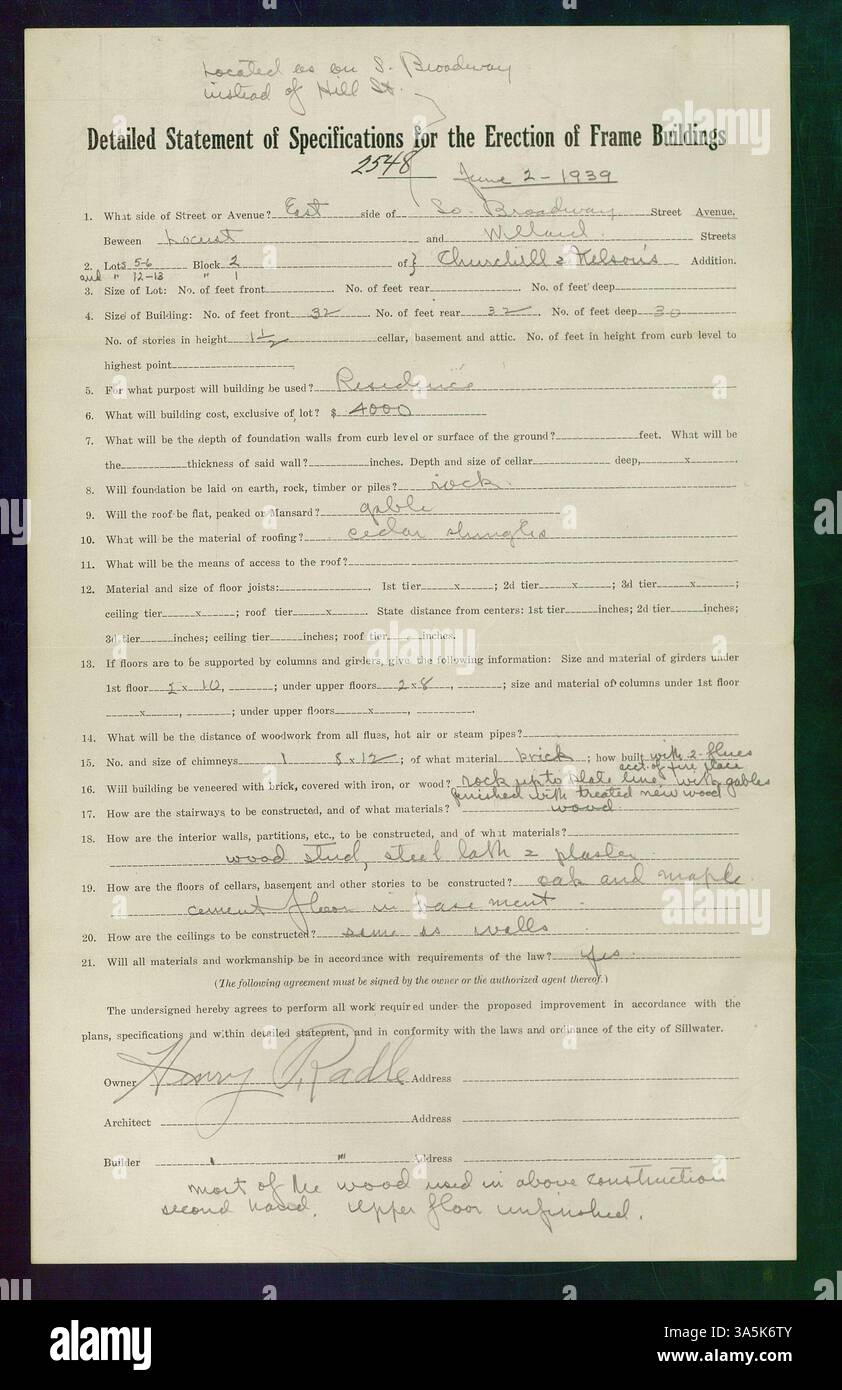 Located as on S. Broadway
instead of Hill St.
Detailed Statement of Specifications for the Erection of Frame Buildings
2548 June 2 - 1939
1. What side of Street or Avenue? East side of So. Broadway Street Avenue.
Beween Locust and Willard Streets
2. Lots 5-6 Block 2 of } Churchill & Nelson's Addition.
and " 12-13 " 1
3. Size of Lot: No. of feet front No. of feet rear No. of feet deep
4. Size of Building: No. of feet front 32 No. of feet rear 32 No. of feet deep 30
No. of stories in height 1 1/2 cellar, basement and attic. No. of feet in height from curb level to
highest point
5. For what purpost will building be used? Residence
6. What will building cost, exclusive of lot? $ 4000
7. What will be the depth of foundation walls from curb level or surface of the ground? feet. What will be
the thickness of said wall? inches. Depth and size of cellar deep, x
8. Will foundation be laid on earth, rock, timber or piles? rock
9. Will the roof be flat, peaked or Mansard? gable
10. What will be the material of roofing? cedar shingles
11. What will be the means of access to the roof?
12. Material and size of floor joists: 1st tier x ; 2d tier x ; 3d tier x ;
ceiling tier x ; roof tier x . State distance from centers: 1st tier inches; 2d tier inches;
3d tier inches; ceiling tier inches; roof tier inches.
13. If floors are to be supported by columns and girders, give the following information: Size and material of girders under
1st floor 2 x 10, ; under upper floors 2 x 8 , ; size and material of columns under 1st floor
x , ; under upper floors x , .
14. What will be the distance of woodwork from all flues, hot air or steam pipes?
15. No. and size of chimneys 1 8 x 12 ; of what material brick ; how built with 2 flues
acct. of fire place
16. Will building be veneered with brick, covered with iron, or wood? rock up to plate line, with gables
finished with treated new wood
17. How are the stairways to be constructed, and of what materials? wood
18. How are the interior walls, partitions, etc., to be constructed, and of what materials?
wood stud, steel lath & plaster
19. How are the floors of cellars, basement and other stories to be constructed? oak and maple
cement floor in basement
20. How are the ceilings to be constructed? same as walls
21. Will all materials and workmanship be in accordance with requirements of the law? yes.
(The following agreement must be signed by the owner or the authorized agent thereof.)
The undersigned hereby agrees to perform all work required under the proposed improvement in accordance with the
plans, specifications and within detailed statement, and in conformity with the laws and ordinance of the city of Sillwater.
Owner Henry P. Radle Address
Architect Address
Builder " " Address
most of the wood used in above construction
second hand. Upper floor unfinished.
alamy
Image ID: 3A5K6TY
www.alamy.com